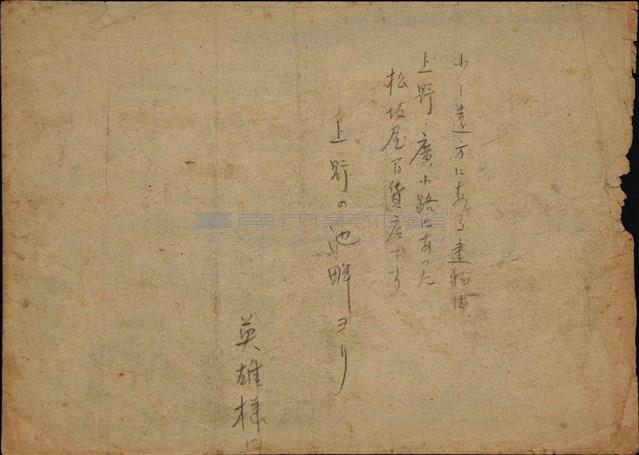 少し遠方にある建物は、
上野・廣小路にあった
松坂屋百貨店です
上野の池畔ヨリ
英雄様に
臺南市美術館